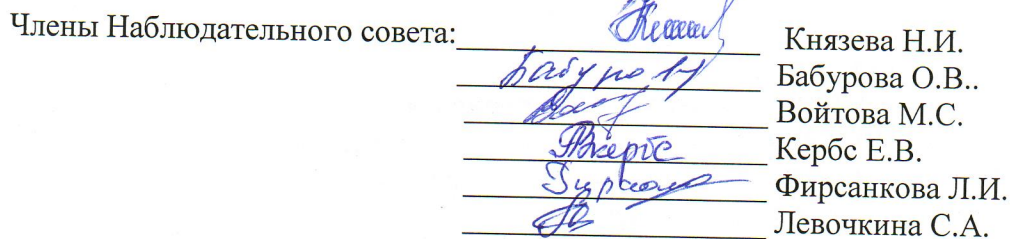 Члены Наблюдательного совета: Князева Н.И.
Бабурова О.В..
Войтова М.С.
Кербс Е.В.
Фирсанкова Л.И.
Левочкина С.А.